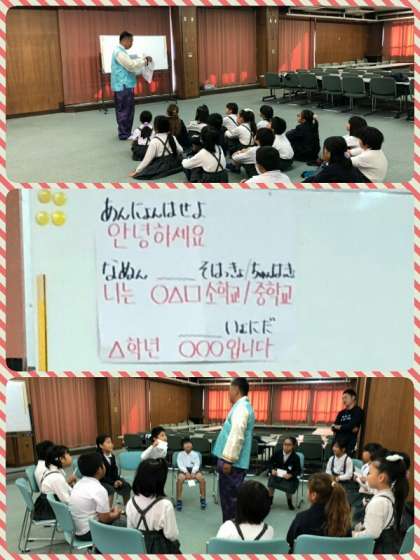 あんにょんはせよ
안녕하세요
なぬん ____ そはっきょ/ちゅんはっき
나는 ○△□소학교/중학교
____ いむにだ
△학년 ○○○입니다